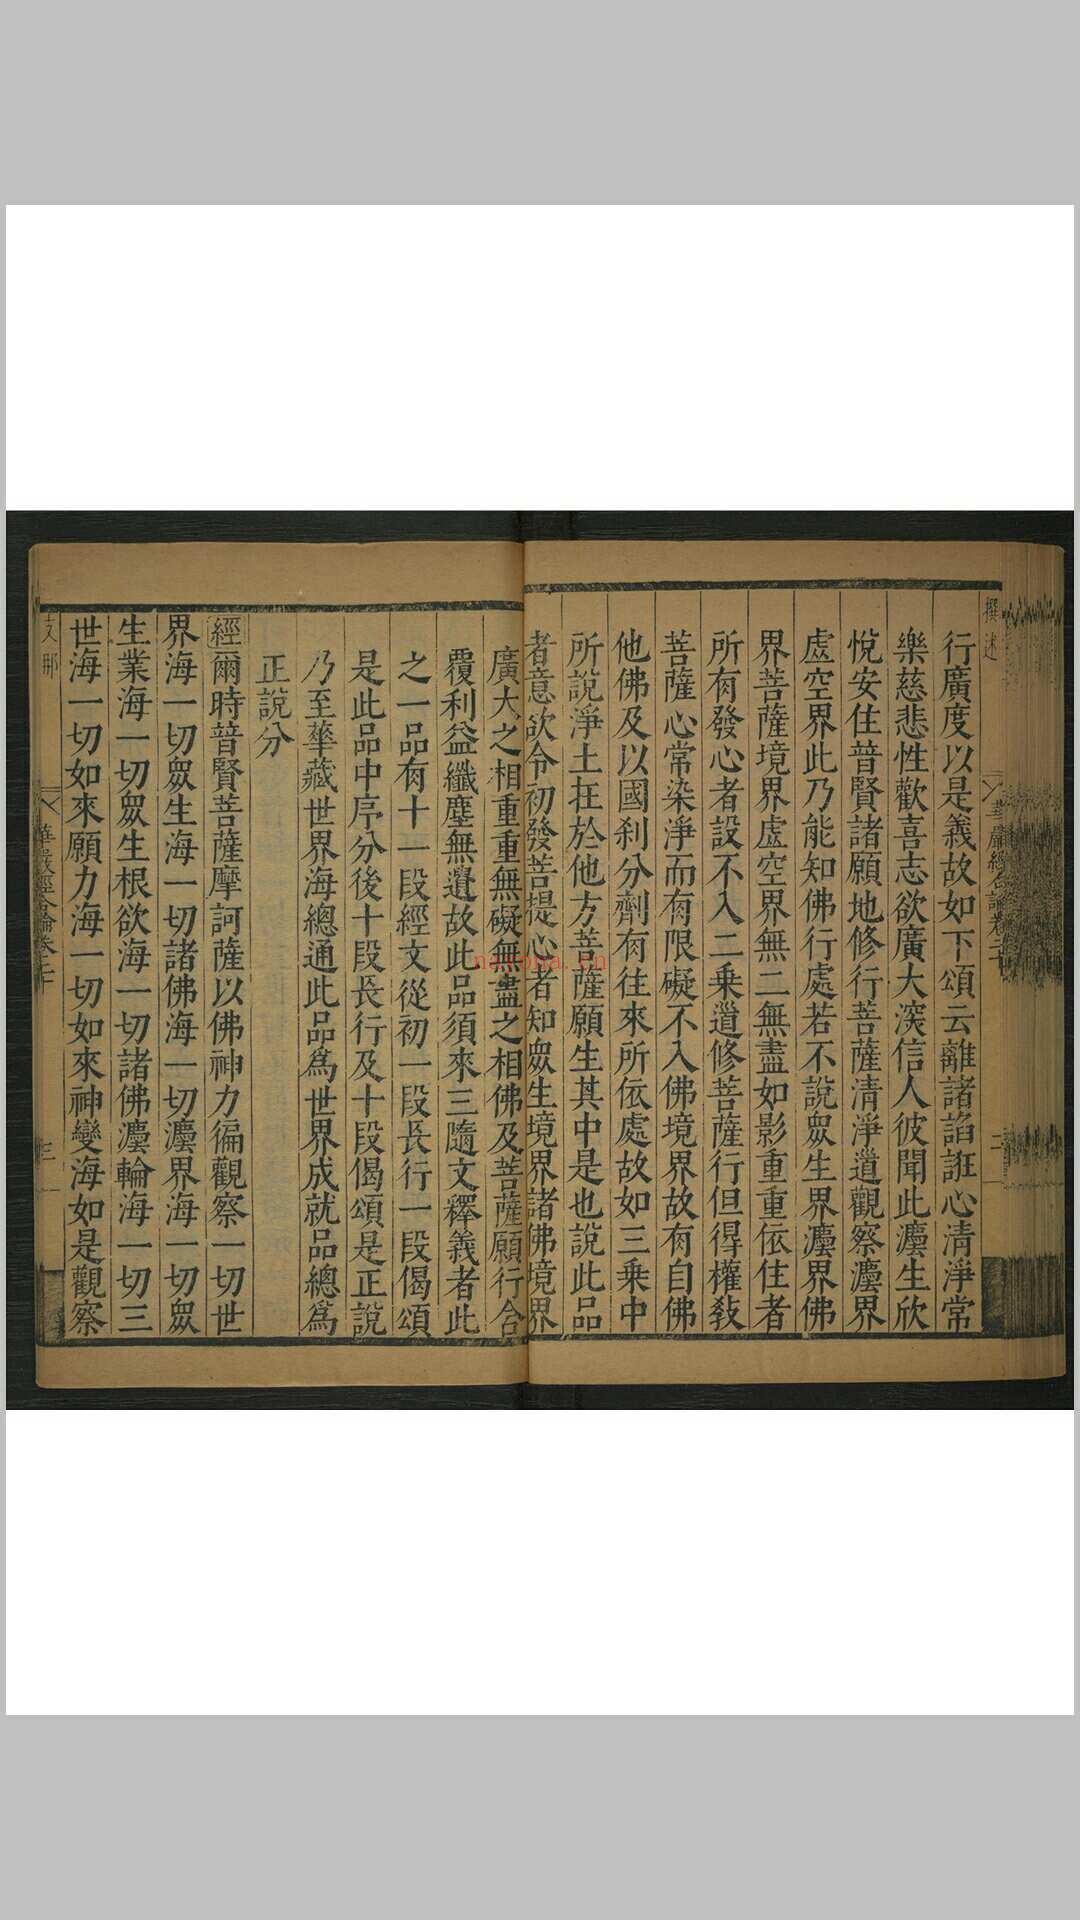 撰述
華嚴經合論卷二十
二
行廣度以是義故如下頌云離諸諂誑心清淨常
樂慈悲性歡喜志欲廣大㴱信人彼聞此灋生欣
悅安住普賢諸願地修行菩薩清淨道觀察灋界
虛空界此乃能知佛行處若不說眾生界灋界佛
界菩薩境界虛空界無二無盡如影重重依住者
所有發心者設不入二乗道修菩薩行但得權敎
菩薩心常染淨而有限礙不入佛境界故有自佛
他佛及以國刹分劑有往來所依處故如三乗中
所說淨土在於他方菩薩願生其中是也說此品
者意欲令初發菩提心者知眾生境界諸佛境界
廣大之相重重無礙無盡之相佛及菩薩願行合
覆利益纖塵無遺故此品須來三隨文釋義者此
之一品有十一段經文從初一段長行一段偈頌
是此品中序分後十段長行及十段偈頌是正說
乃至華藏世界海總通此品爲世界成就品總爲
正說分
經爾時普賢菩薩摩訶薩以佛神力徧觀察一切世
界海一切眾生海一切諸佛海一切灋界海一切眾
生業海一切眾生根欲海一切諸佛灋輪海一切三
世海一切如來願力海一切如來神變海如是觀察
支那
華嚴經合論卷二十
三
nayona.cn